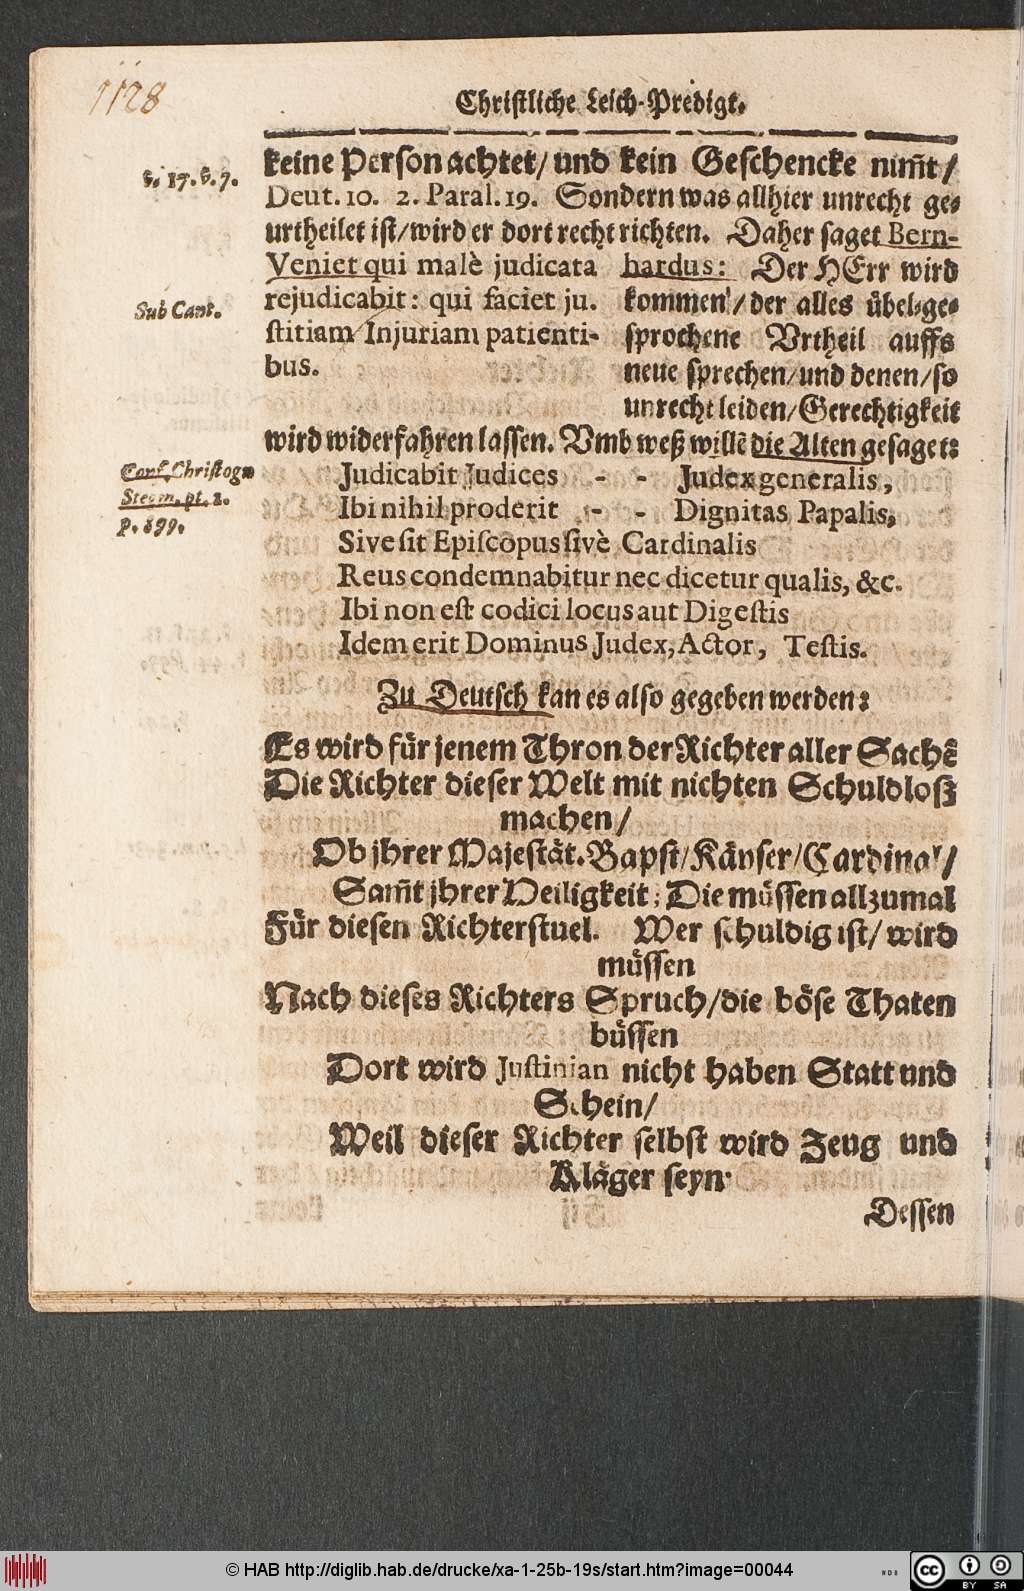 1128
Christliche Leich-Predigt.
keine Person achtet/ und kein Geschencke nim̃t/
v. 17. v. 7.
Deut. 10. 2. Paral. 19. Sondern was allhier unrecht ge-
urtheilet ist/ wird er dort recht richten. Daher saget Bern-
hardus: Der HErr wird
kommen/ der alles übel-ge-
sprochene Vrtheil auffs
neue sprechen/ und denen/ so
unrecht leiden/ Gerechtigkeit
Veniet qui malè judicata
rejudicabit: qui faciet ju-
stitiam Injuriam patienti-
bus.
Sub Cant.
wird widerfahren lassen. Vmb weß willē die Alten gesaget:
Conf. Christogn
Stegm. pt. 2.
p. 899.
Judicabit Judices - - Judex generalis,
Ibi nihil proderit - - Dignitas Papalis,
Sive sit Episcopus sivè Cardinalis
Reus condemnabitur nec dicetur qualis, &c.
Ibi non est codici locus aut Digestis
Idem erit Dominus Judex, Actor, Testis.
Zu Deutsch kan es also gegeben werden:
Es wird für jenem Thron der Richter aller Sachē
Die Richter dieser Welt mit nichten Schuldloß
machen/
Ob jhrer Majestät. Bapst/ Käyser/ Cardinal/
Sam̃t jhrer Heiligkeit; Die müssen allzumal
Für diesen Richterstuel. Wer schuldig ist/ wird
müssen
Nach dieses Richters Spruch/ die böse Thaten
büssen
Dort wird Justinian nicht haben Statt und
Schein/
Weil dieser Richter selbst wird Zeug und
Kläger seyn.
Dessen
© HAB http://diglib.hab.de/drucke/xa-1-25b-19s/start.htm?image=00044
WDB
cc BY SA